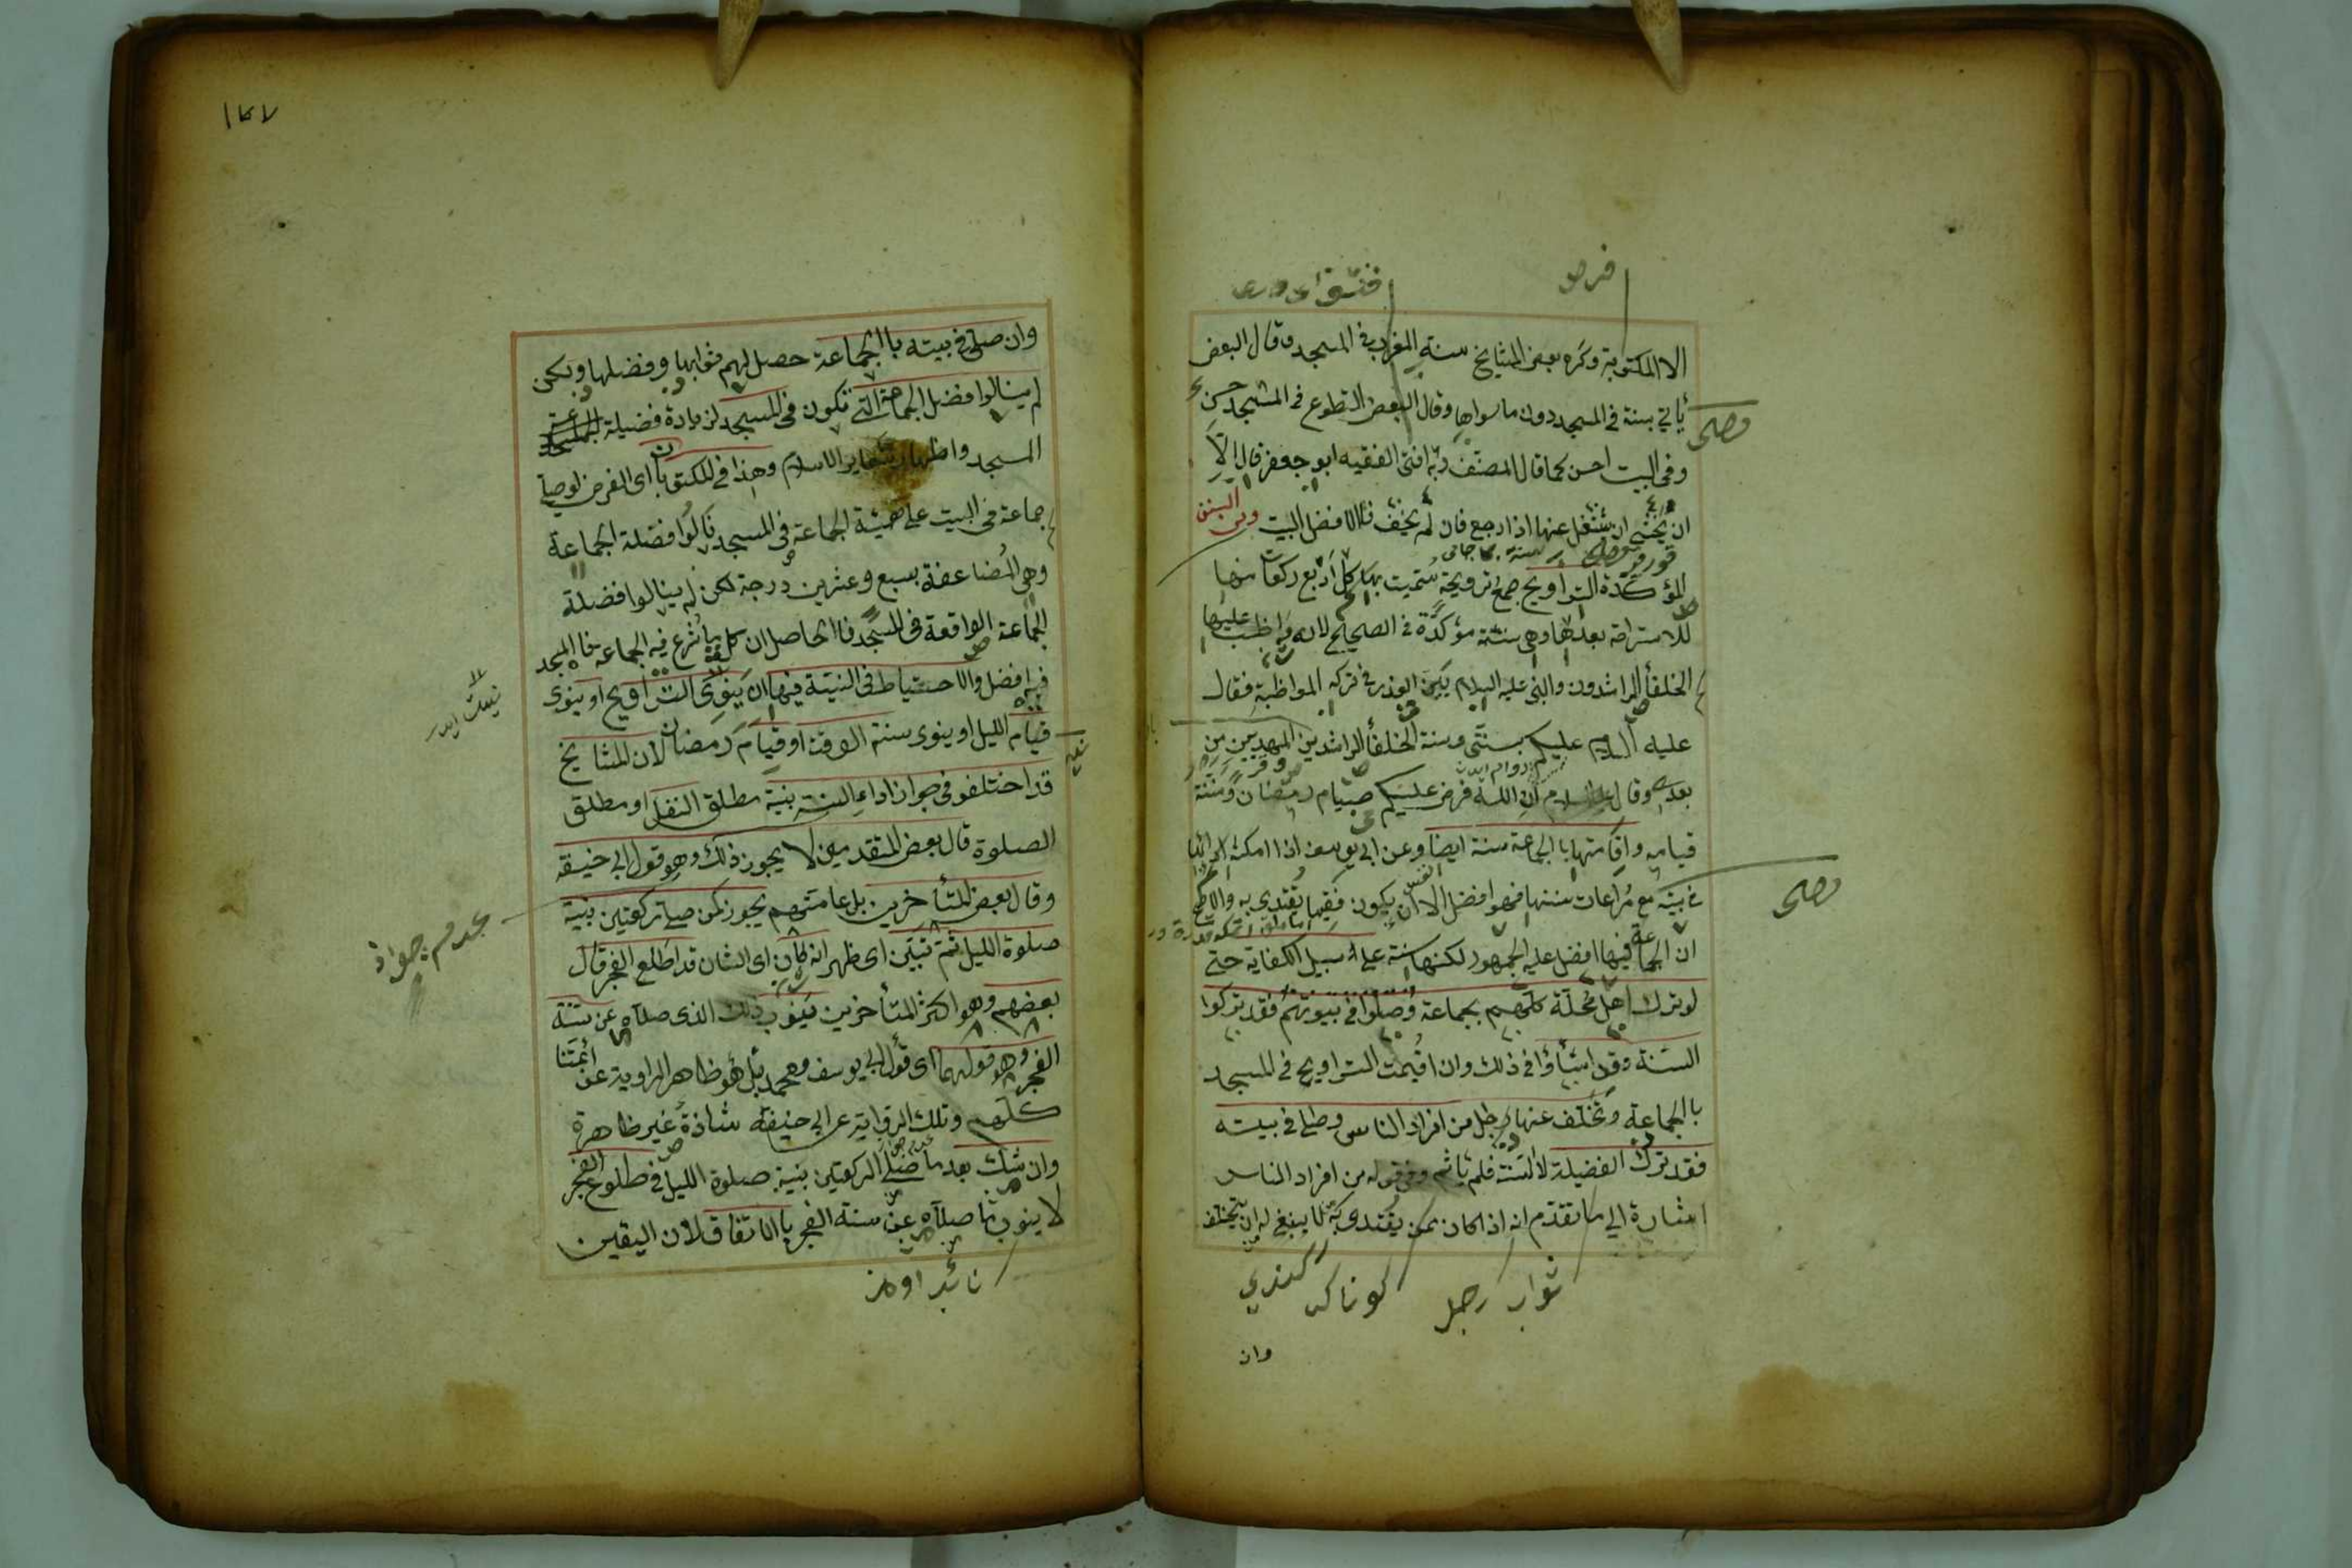 فرض
الا المكتوبة وكره بعض المشايخ سنة المغرب في المسجد وقال البعض
ياتي بسنة في المسجد دون ما سواها وقال البعض التطوع في المسجد حسن
وفي البيت احسن كما قال المصنف وبه افتى الفقيه ابو جعفر قال الا
ان يخشى ان يشتغل عنها اذا رجع فان لم يخف فالافضل البيت ومن السنن
المؤكدة التراويح جمع ترويحة سميت بها كل اربع ركعات منها
للاستراحة بعدها وهي سنة مؤكدة في الصحيح لانه واظبت عليها
الخلفأ الراشدون والنبي عليه السلام بين العذر في تركه المواظبة فقال
عليه السلام عليكم بسنتي وسنة الخلفأ الراشدين المهديين من
بعدي وقال عليه السلام ان الله فرض عليكم صيام رمضان وسننت
قيامه واقامتها بالجماعة سنة ايضا وعن ابي يوسف اذا امكنه ادائها
في بيته مع مراعات سننها فهو افضل الا ان يكون فقيها يقتدى به والاصح
ان الجماعة فيها افضل عليه الجمهور لكنها سنة على سبيل الكفاية حتى
لو ترك اهل محلة كلهم بجماعة وصلوا في بيوتهم فقد تركوا
السنة وقد اساؤا في ذلك وان اقيمت التراويح في المسجد
بالجماعة وتخلف عنها رجل من افراد الناس وصلى في بيته
فقد ترك الفضيلة لا السنة فلم يأثم وفي قوله من افراد الناس
اشارة الى ما تقدم انه اذا كان ممن يقتدى به لا ينبغي له ان يتخلف
ثواب رجل
وان
وان صلى في بيته بالجماعة حصل لهم ثوابها وفضلها ولكن
لم ينالوا فضل الجماعة التي تكون في المسجد لزيادة فضيلة
المسجد واظهار شعاير الاسلام وهذا في المكتوبات اى الفرض لو صلى
جماعة في البيت على هيئة الجماعة في المسجد نالوا فضلة الجماعة
وهي المضاعفة بسبع وعشرين درجة لكن لم ينالوا فضلة
الجماعة الواقعة في المسجد فالحاصل ان كل ما شرع فيه الجماعة فالمسجد
فيه افضل والاحتياط في النية فيها ان ينوى التراويح او ينوى
قيام الليل او ينوى سنة الوقت او قيام رمضان لان المشايخ
قد اختلفو في جواز اداء السنة بنية مطلق النفل او مطلق
الصلوة قال بعض المتقدمين لا يجوز ذلك وهو قول ابي حنيفة
وقال بعض المتأخرين بل عامتهم يجوز لمن صلى ركعتين بنية
صلوة الليل ثم تبين اى ظهر انه كان اى الشان قد طلع الفجر قال
بعضهم وهو اكثر المتأخرين ينوب ذلك الذى صلاه عن سنة
الفجر وهو قولهما اى قول ابي يوسف ومحمد بل هو ظاهر الراوية عن أئمتنا
كلهم وتلك الرواية عن ابي حنيفة شاذة غير ظاهرة
وان شك بعد ما صلى الركعتين بنية صلوة الليل في طلوع الفجر
لا ينوب ما صلاه عن سنة الفجر بالاتفاق لان اليقين
عدم جواز